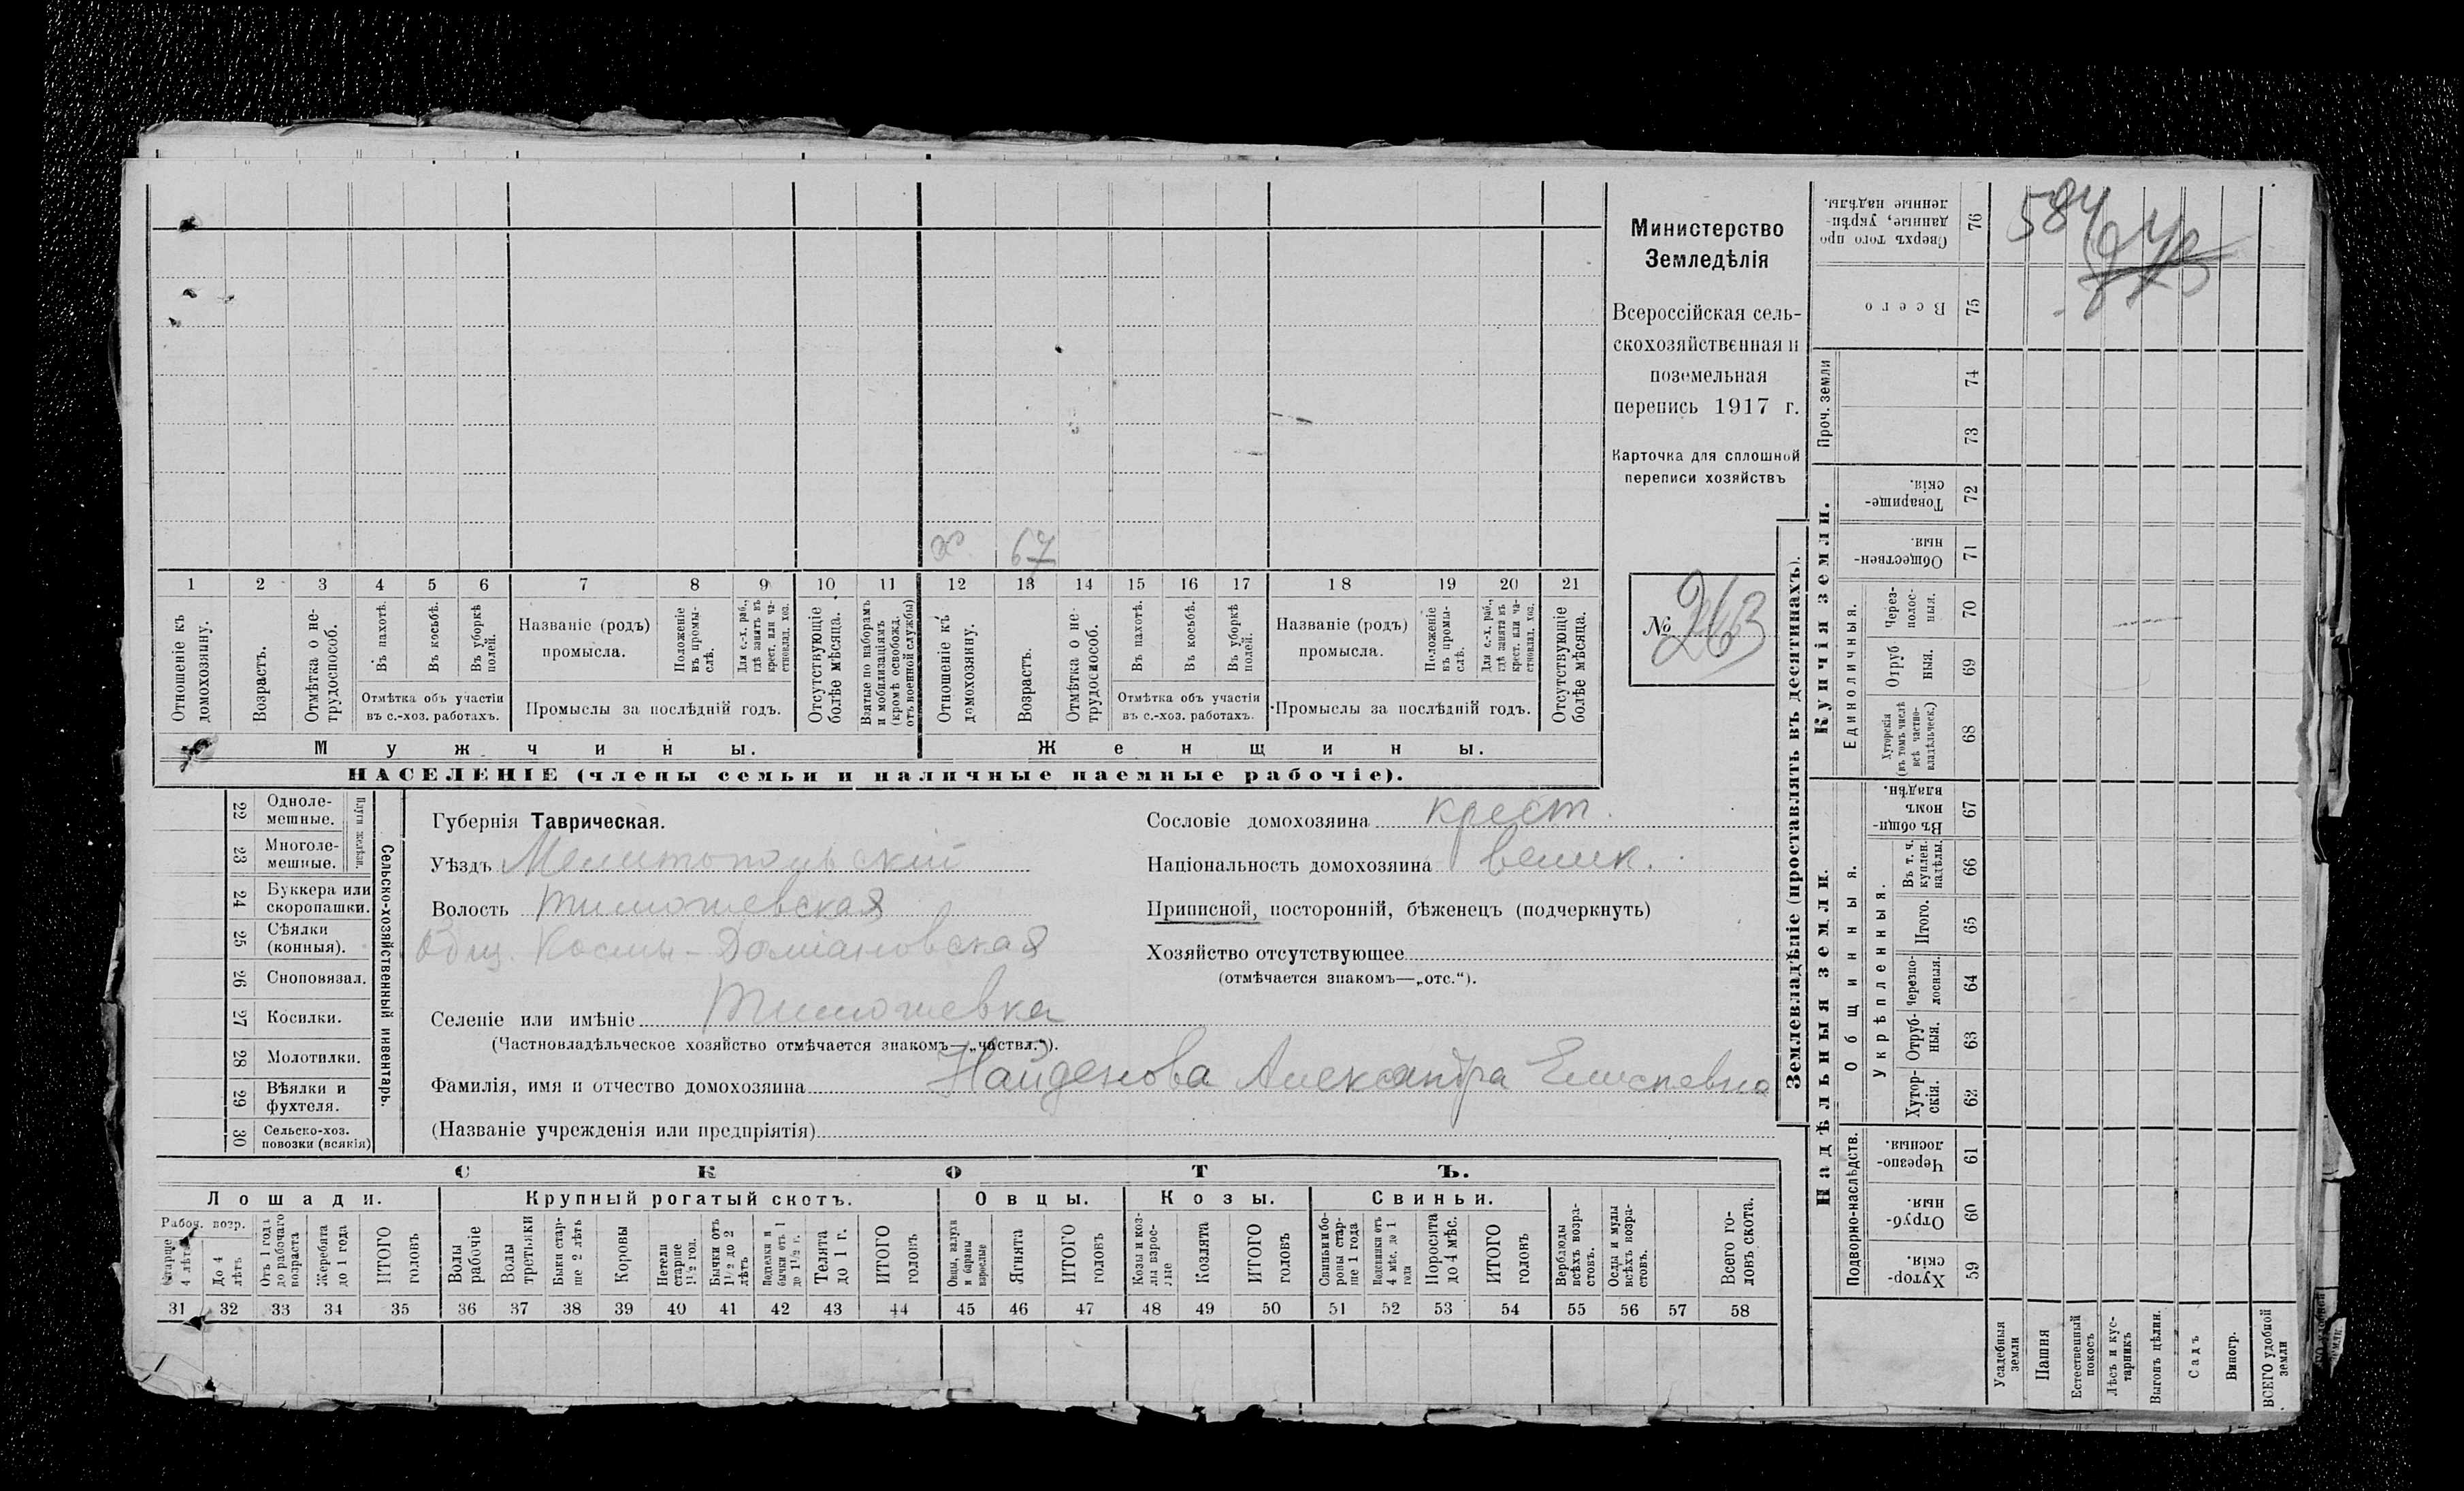 584
Министерство
Земледѣлія
Всероссійская сель-
скохозяйственная и
поземельная
перепись 1917 г.
Карточка для сплошной
переписи хозяйствъ
№ 263
х 67
1 2 3 4 5 6 7 8 9 10 11 12 13 14 15 16 17 18 19 20 21
Отношеніе къ домохозяину.
Возрастъ.
Отмѣтка о не-трудоспособ.
Въ пахотѣ.
Въ косьбѣ.
Въ уборкѣ полей.
Отмѣтка объ участіи
въ с.-хоз. работахъ.
Названіе (родъ)
промысла.
Положеніе въ промы-слѣ.
Для с.-х. раб., гдѣ занятъ въ крест. или ча-стновлад. хоз.
Промыслы за послѣдній годъ.
Отсутствующіе болѣе мѣсяца.
Взятые по наборамъ и мобилизаціямъ (кромѣ освобожд. отъ военной службы)
Отношеніе къ домохозяину.
Возрастъ.
Отмѣтка о не-трудоспособ.
Въ пахотѣ.
Въ косьбѣ.
Въ уборкѣ полей.
Отмѣтка объ участіи
въ с.-хоз. работахъ.
Названіе (родъ)
промысла.
Положеніе въ промы-слѣ.
Для с.-х. раб., гдѣ занята въ крест. или ча-стновлад. хоз.
Промыслы за послѣдній годъ.
Отсутствующіе болѣе мѣсяца.
Мужчины.
Женщины.
НАСЕЛЕНІЕ (члены семьи и наличные наемные рабочіе).
22 Одноле-мешные.
23 Многоле-мешные.
Плуги желѣзн.
24 Буккера или скоропашки.
25 Сѣялки (конныя).
26 Сноповязал.
27 Косилки.
28 Молотилки.
29 Вѣялки и фухтеля.
30 Сельско-хоз. повозки (всякія)
Сельско-хозяйственный инвентарь.
Губернія Таврическая.
Уѣздъ Мелитопольскій
Волость Тимошевская
Общ. Космы-Даміановская
Селеніе или имѣніе Тимошевка
(Частновладѣльческое хозяйство отмѣчается знакомъ—„частвл.“).
Фамилія, имя и отчество домохозяина Найденова Александра Елисѣевна
(Названіе учрежденія или предпріятія)
Сословіе домохозяина крест.
Національность домохозяина велик.
Приписной, посторонній, бѣженецъ (подчеркнуть)
Хозяйство отсутствующее
(отмѣчается знакомъ—„отс.“).
СКОТЪ.
Лошади.
Крупный рогатый скотъ.
Овцы.
Козы.
Свиньи.
Рабоч. возр.
Старше 4 лѣтъ
До 4 лѣтъ
Отъ 1 года до рабочаго возраста
Жеребята до 1 года
ИТОГО головъ
Волы рабочіе
Волы третьяки
Быки стар-ше 2 лѣтъ
Коровы
Нетели старше 1½ год.
Бычки отъ 1½ до 2 лѣтъ
Подтелки и бычки отъ 1 до 1½ г.
Телята до 1 г.
ИТОГО головъ
Овцы, валухи и бараны взрослые
Ягнята
ИТОГО головъ
Козы и коз-лы взрос-лые
Козлята
ИТОГО головъ
Свиньи и бо-ровы стар-ше 1 года
Подсвинки отъ 4 мѣс. до 1 года
Поросята до 4 мѣс.
ИТОГО головъ
Верблюды всѣхъ возра-стовъ.
Ослы и мулы всѣхъ возра-стовъ.
Всего го-ловъ скота.
31 32 33 34 35 36 37 38 39 40 41 42 43 44 45 46 47 48 49 50 51 52 53 54 55 56 57 58
Землевладѣніе (проставлять въ десятинахъ).
Надѣльныя земли.
Купчія земли.
Проч. земли
Подворно-наслѣдств.
Общинныя.
Укрѣпленныя.
Единоличныя.
Сверхъ того про-данные, укрѣп-ленные надѣлы. 76
Всего 75
74
73
Товарище-скія. 72
Обществен-ныя. 71
Через-полос-ныя. 70
Отруб-ныя. 69
Хуторскія (въ томъ числѣ всѣ частно-владѣльческ.) 68
Въ общи-номъ владѣн. 67
Въ т. ч. куплен. надѣлы. 66
Итого. 65
Черезпо-лосныя. 64
Отруб-ныя. 63
Хутор-скія. 62
Черезпо-лосныя. 61
Отруб-ныя. 60
Хутор-скія. 59
Усадебныя земли
Пашня
Естественный покосъ
Лѣсъ и кус-тарникъ
Выгонъ цѣлин.
Садъ
Виногр.
ВСЕГО удобной земли